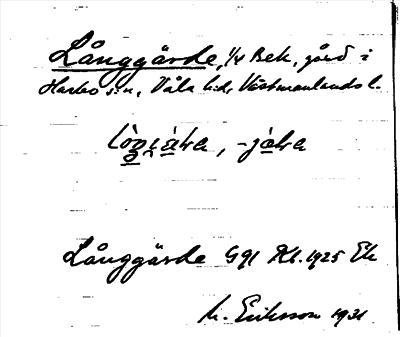 Långgärde, 1/4 Bek, gård i
Harbo sn, Våla hd, Västmanlands l.
Långgärde G91 Kl. 1925 Ek
M. Eriksson 1931